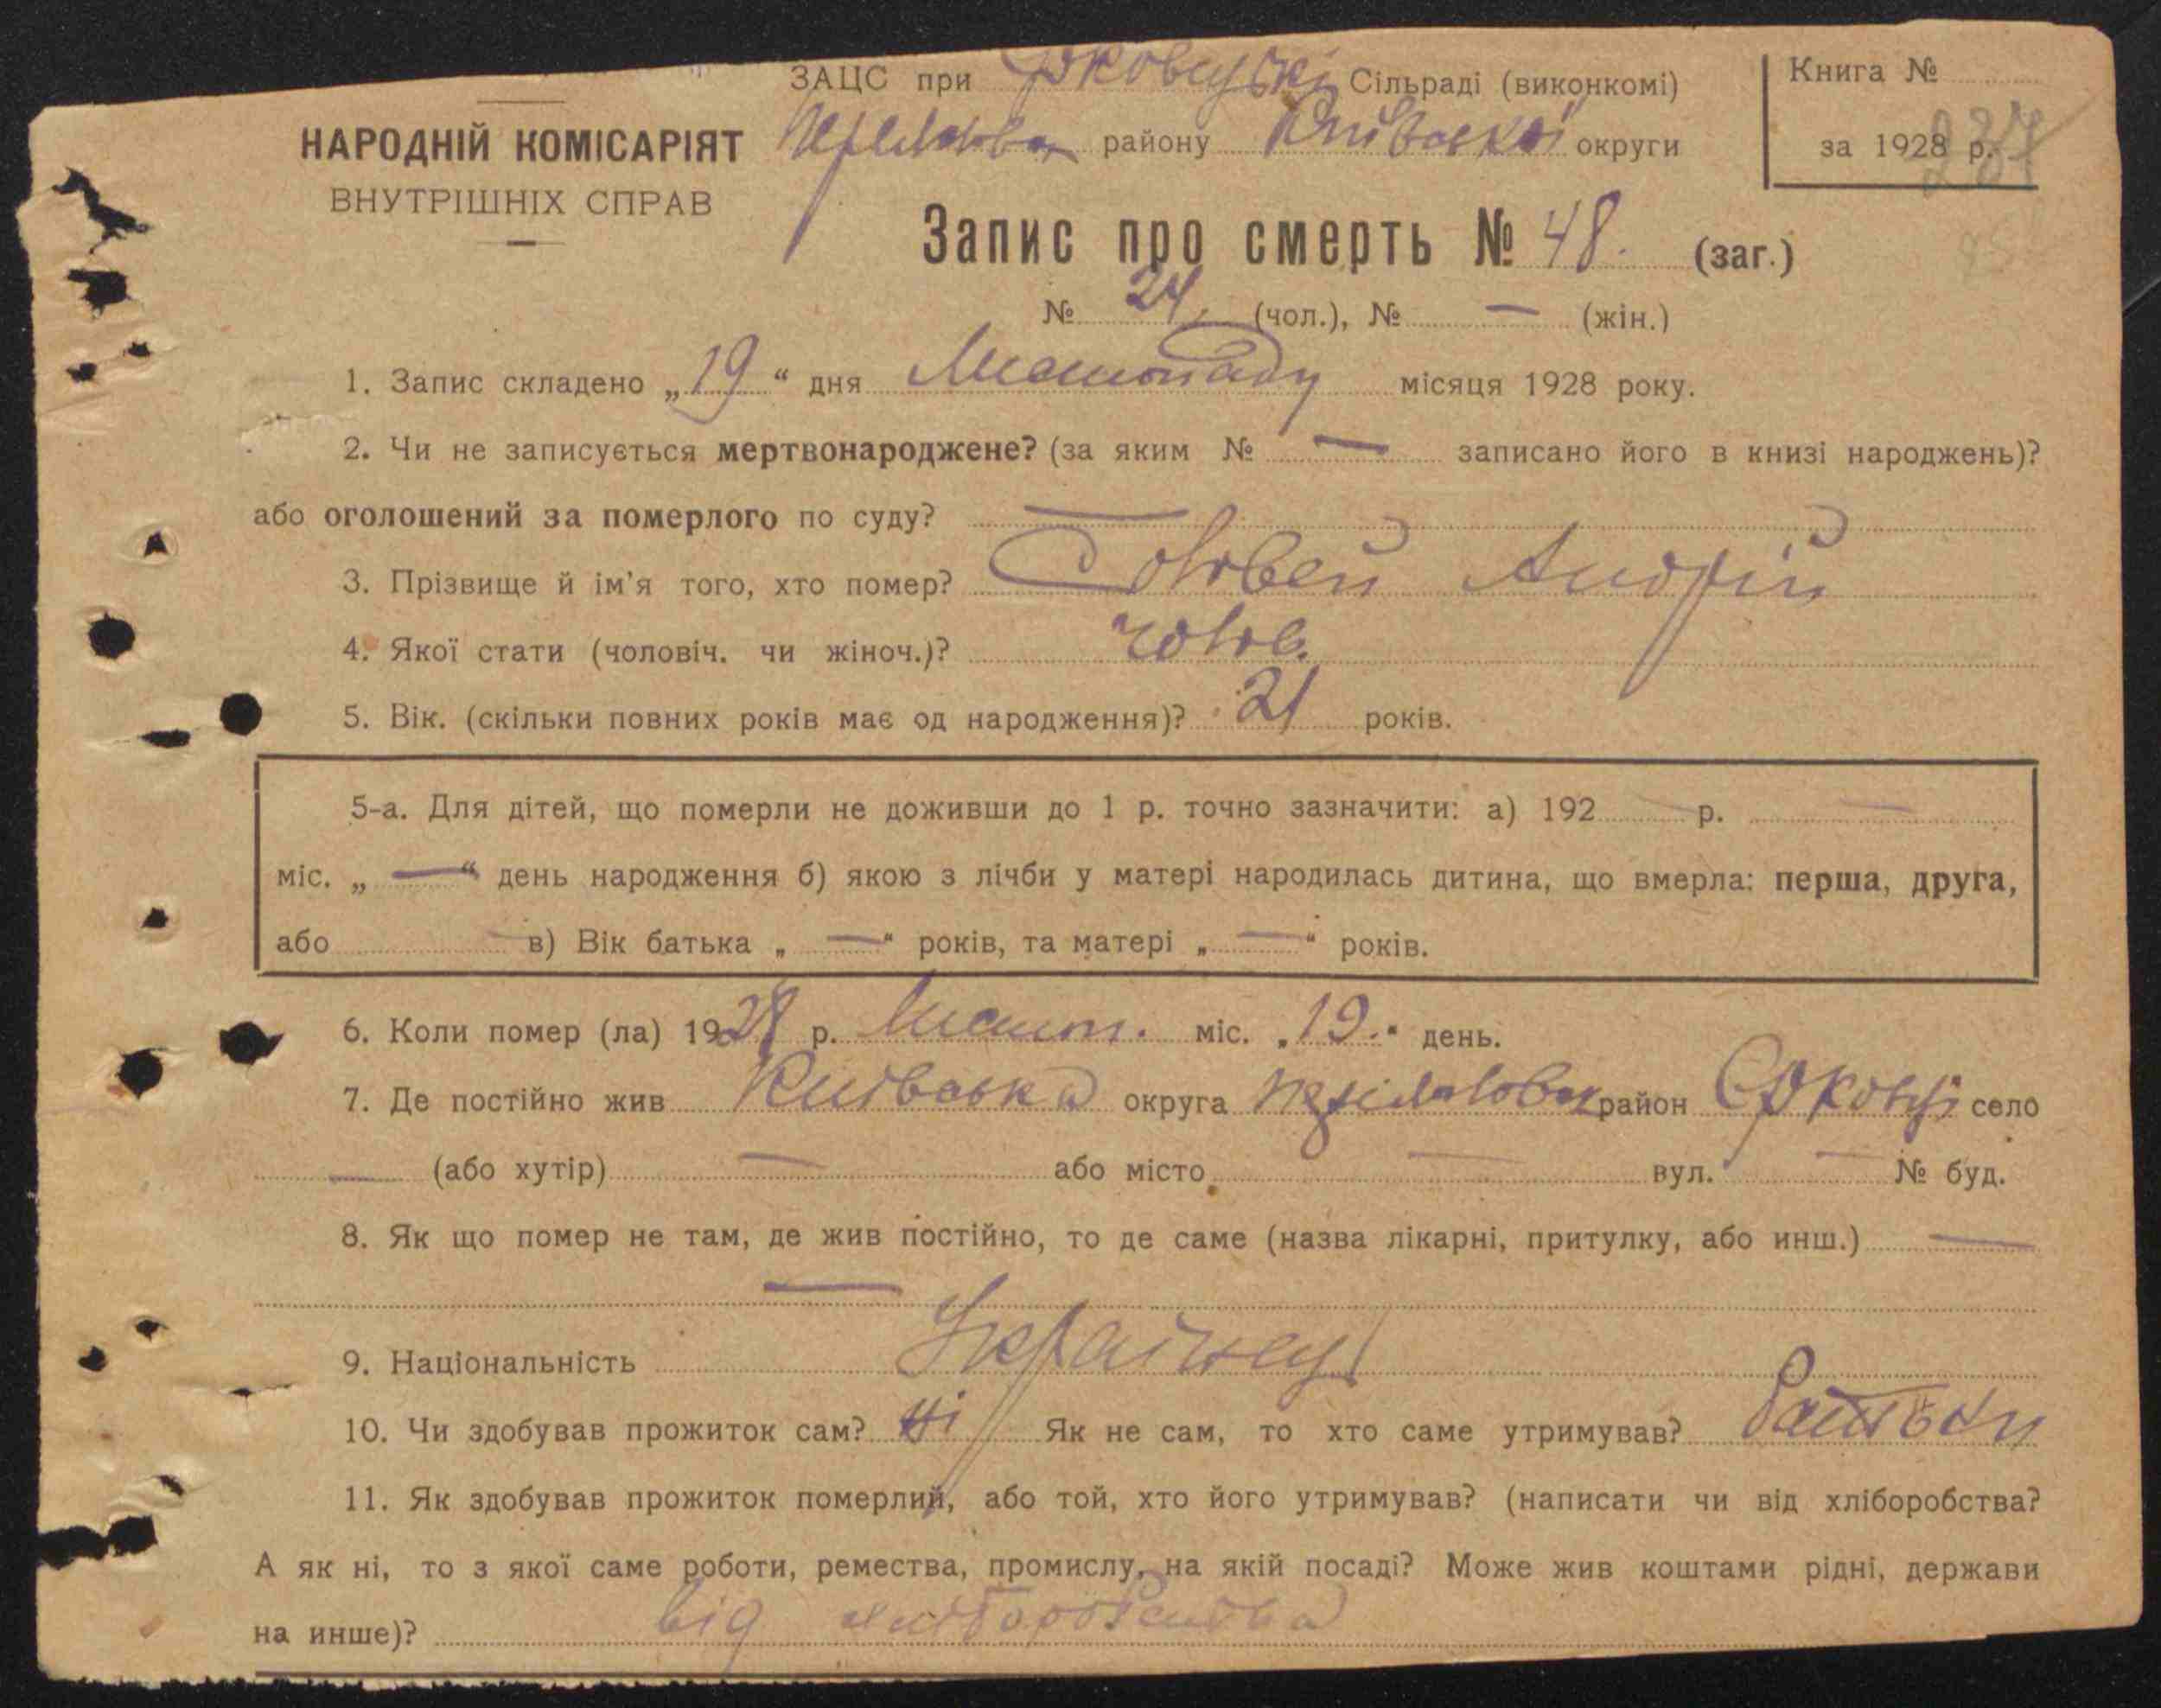 ЗАЦС при Єрковецькі Сільраді (виконкомі)
Книга №
НАРОДНІЙ КОМІСАРІЯТ
району Київської округи
за 1928 р.
ВНУТРІШНІХ СПРАВ
Запис про смерть № 48. (заг.)
№ 24 (чол.), № — (жін.)
1. Запис складено „19“ дня Листопаду місяця 1928 року.
2. Чи не записується мертвонароджене? (за яким № — записано його в книзі народжень)?
або оголошений за померлого по суду? —
3. Прізвище й ім'я того, хто помер? Соловей Андрій
4. Якої стати (чоловіч. чи жіноч.)? чолов.
5. Вік. (скільки повних років має од народження)? 21 років.
5-а. Для дітей, що померли не доживши до 1 р. точно зазначити: а) 192 — р. —
міс. „—“ день народження б) якою з лічби у матері народилась дитина, що вмерла: перша, друга,
або — в) Вік батька „—“ років, та матері „—“ років.
6. Коли помер (ла) 1928 р. Лист. міс. „19.“ день.
7. Де постійно жив Київська округа район Єрковці село
— (або хутір) — або місто — вул. — № буд.
8. Як що помер не там, де жив постійно, то де саме (назва лікарні, притулку, або инш.) —
—
9. Національність Українец
10. Чи здобував прожиток сам? ні Як не сам, то хто саме утримував? батьки
11. Як здобував прожиток померлий, або той, хто його утримував? (написати чи від хліборобства?
А як ні, то з якої саме роботи, ремества, промислу, на якій посаді? Може жив коштами рідні, держави
на инше)? від хліборобства